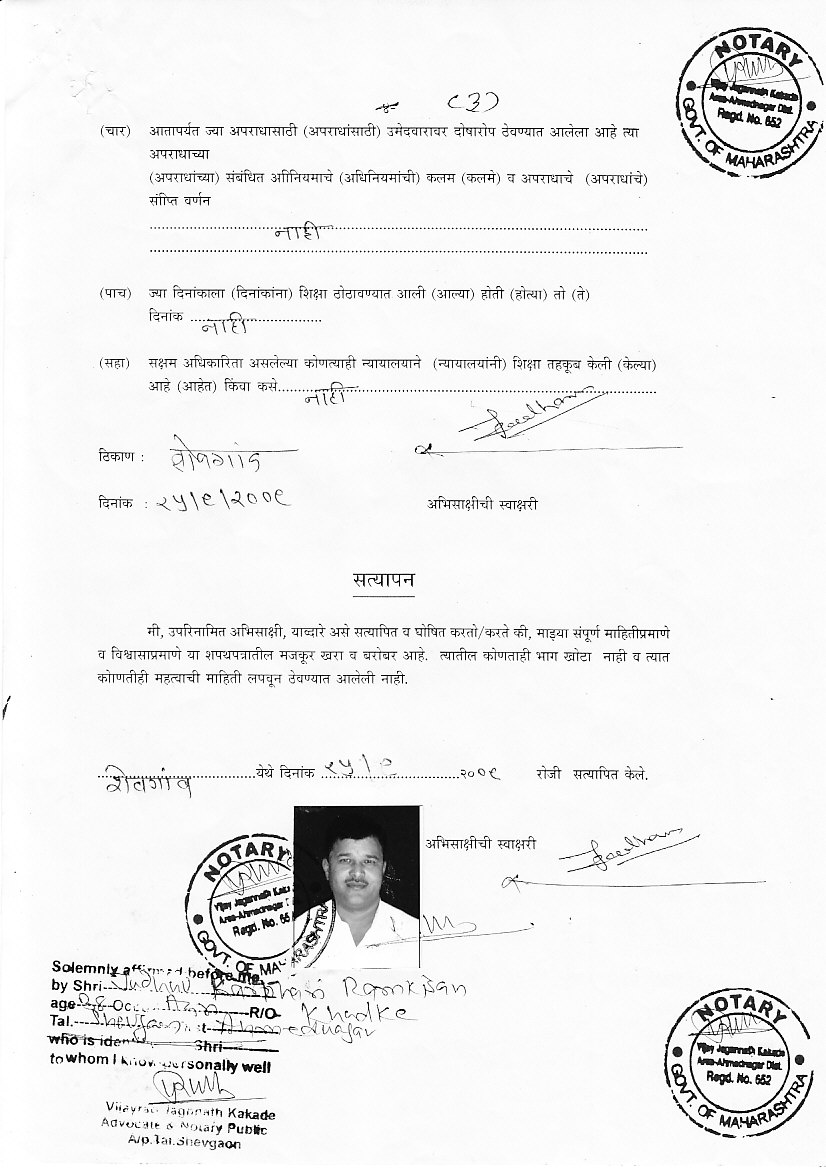 (3)
NOTARY
Vijay Jagannath Kakade
Area-Ahmednagar Dist.
Regd. No. 652
GOVT. OF MAHARASHTRA
(चार) आतापर्यत ज्या अपराधासाठी (अपराधांसाठी) उमेदवारावर दोषारोप ठेवण्यात आलेला आहे त्या
अपराधाच्या
(अपराधांच्या) संबंधित अीिनियमाचे (अधिनियमांची) कलम (कलमे) व अपराधाचे (अपराधांचे)
संीप्ति वर्णन
नाही
(पाच) ज्या दिनांकाला (दिनांकांना) शिक्षा ठोठावण्यात आली (आल्या) होती (होत्या) तो (ते)
दिनांक नाही
(सहा) सक्षम अधिकारिता असलेल्या कोणत्याही न्यायालयाने (न्यायालयांनी) शिक्षा तहकूब केली (केल्या)
आहे (आहेत) किंवा कसे नाही
ठिकाण : शेवगांव
दिनांक : २५/९/२००९ अभिसाक्षीची स्वाक्षरी
सत्यापन
मी, उपरिनामित अभिसाक्षी, याव्दारे असे सत्यापित व घोषित करतो/करते की, माझ्या संपूर्ण माहितीप्रमाणे
व विश्वासाप्रमाणे या शपथपत्रातील मजकूर खरा व बरोबर आहे. त्यातील कोणताही भाग खोटा नाही व त्यात
कोणतीही महत्वाची माहिती लपवून ठेवण्यात आलेली नाही.
शेवगांव येथे दिनांक २५/ २००९ रोजी सत्यापित केले.
अभिसाक्षीची स्वाक्षरी
NOTARY
Vijay Jagannath Kakade
Area-Ahmednagar
Regd. No. 65
GOVT. OF MAHARASHTRA
Solemnly affirmed before me
by Shri Ramkisan
age Occ R/O- Khadke
Tal. Shevgaon Ahmednagar
who is iden Shri
to whom I know personally well
Vijayrao Jagannath Kakade
Advocate & Notary Public
A/p.Tal.Shevgaon
NOTARY
Vijay Jagannath Kakade
Area-Ahmednagar Dist.
Regd. No. 652
GOVT. OF MAHARASHTRA